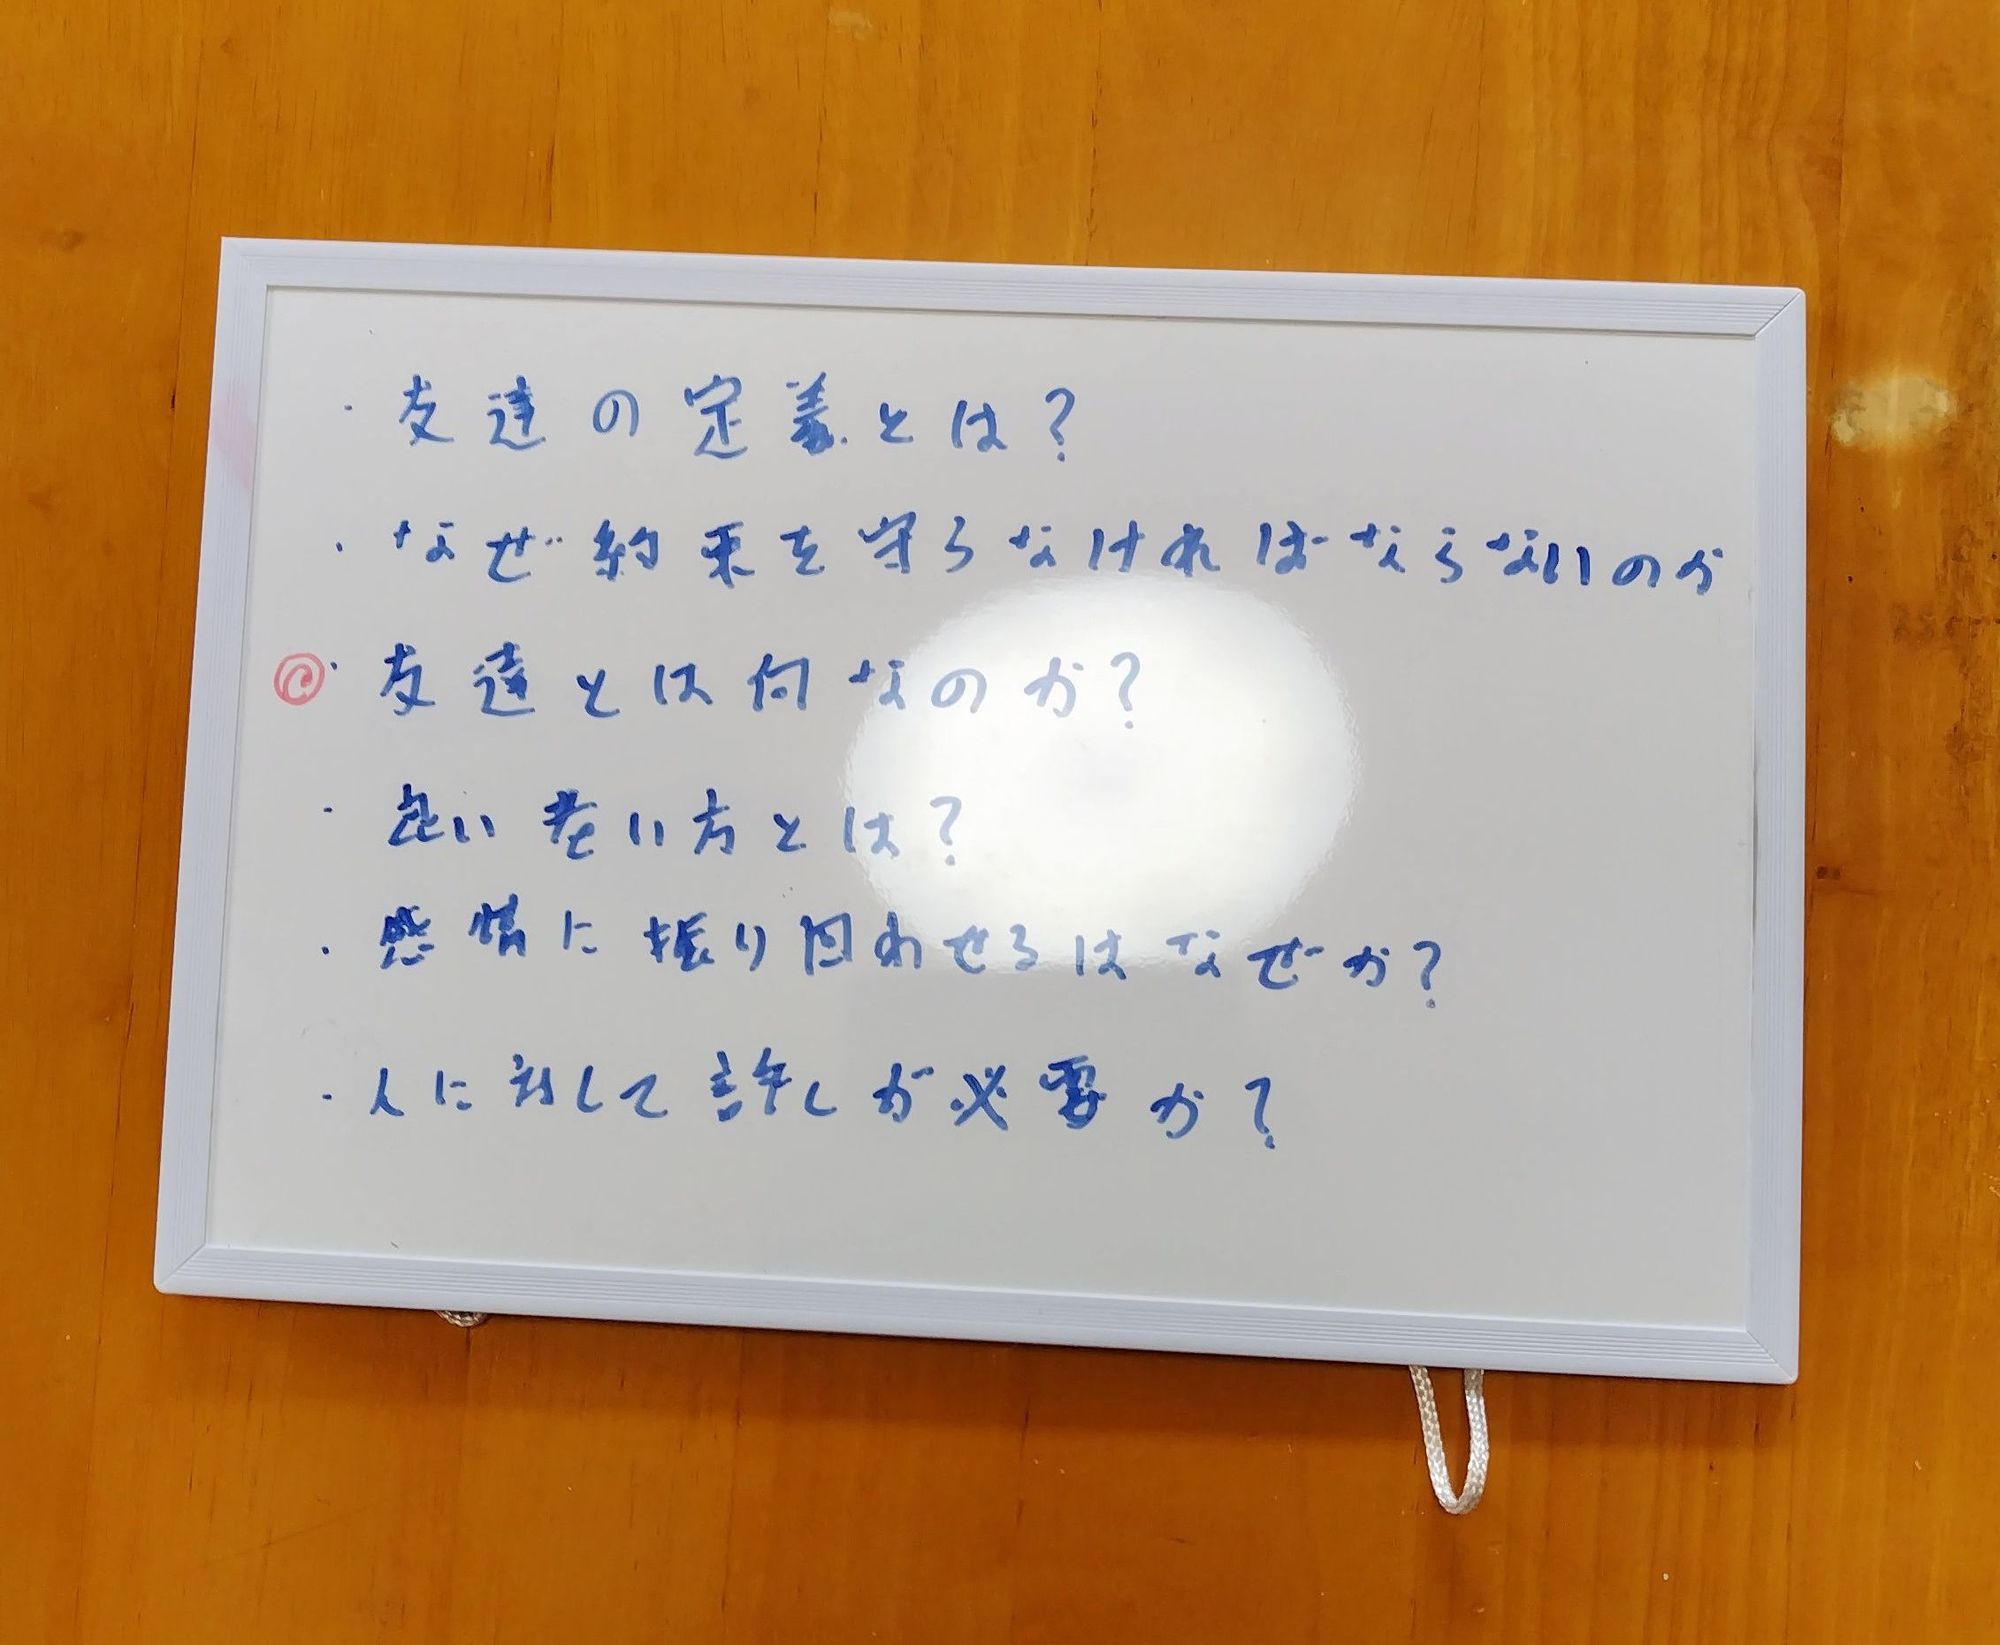 ・友達の定義とは?
・なぜ約束を守らなければならないのか
◎・友達とは何なのか?
・良い老い方とは?
・感情に振り回わせるはなぜか?
・人に対して許しが必要か?